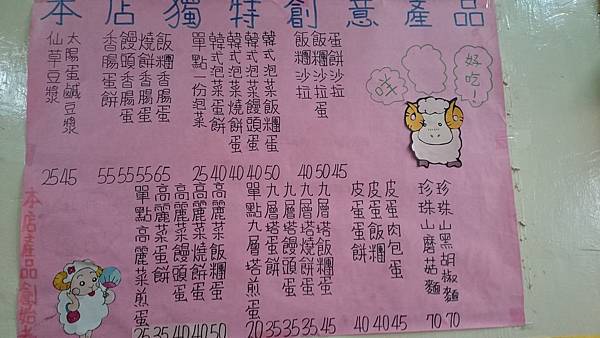 本店獨特創意產品
好吃!
咩
蛋餅沙拉 45
飯糰沙拉蛋 50
飯糰沙拉 40
韓式泡菜飯糰蛋 50
韓式泡菜饅頭蛋 40
韓式泡菜燒餅蛋 40
韓式泡菜蛋餅 40
單點一份泡菜 25
飯糰香腸蛋 65
燒餅香腸蛋 55
饅頭香腸蛋 55
香腸蛋餅 55
太陽蛋鹹豆漿 45
仙草豆漿 25
珍珠山黑胡椒麵 70
珍珠山蘑菇麵 70
皮蛋肉包蛋 45
皮蛋飯糰 40
皮蛋蛋餅 40
九層塔飯糰蛋 45
九層塔燒餅蛋 35
九層塔饅頭蛋 35
九層塔蛋餅 35
單點九層塔煎蛋 20
高麗菜飯糰蛋 50
高麗菜燒餅蛋 40
高麗菜饅頭蛋 40
高麗菜蛋餅 35
單點高麗菜煎蛋 25
本店產品創始